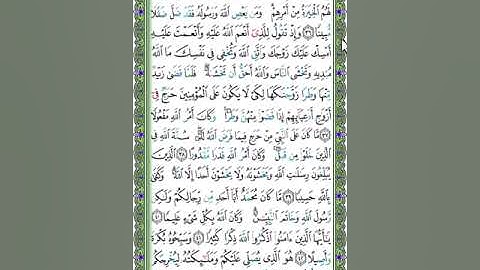 لَهُمُ ٱلْخِيَرَةُ مِنْ أَمْرِهِمْ ۗ وَمَن يَعْصِ ٱللَّهَ وَرَسُولَهُۥ فَقَدْ ضَلَّ ضَلَٰلًا
مُّبِينًا ﴿٣٦﴾ وَإِذْ تَقُولُ لِلَّذِىٓ أَنْعَمَ ٱللَّهُ عَلَيْهِ وَأَنْعَمْتَ عَلَيْهِ
أَمْسِكْ عَلَيْكَ زَوْجَكَ وَٱتَّقِ ٱللَّهَ وَتُخْفِى فِى نَفْسِكَ مَا ٱللَّهُ
مُبْدِيهِ وَتَخْشَى ٱلنَّاسَ وَٱللَّهُ أَحَقُّ أَن تَخْشَىٰهُ ۖ فَلَمَّا قَضَىٰ زَيْدٌ
مِّنْهَا وَطَرًا زَوَّجْنَٰكَهَا لِكَىْ لَا يَكُونَ عَلَى ٱلْمُؤْمِنِينَ حَرَجٌ فِىٓ
أَزْوَٰجِ أَدْعِيَآئِهِمْ إِذَا قَضَوْا۟ مِنْهُنَّ وَطَرًا ۚ وَكَانَ أَمْرُ ٱللَّهِ مَفْعُولًا
﴿٣٧﴾ مَّا كَانَ عَلَى ٱلنَّبِىِّ مِنْ حَرَجٍ فِيمَا فَرَضَ ٱللَّهُ لَهُۥ ۖ سُنَّةَ ٱللَّهِ فِى
ٱلَّذِينَ خَلَوْا۟ مِن قَبْلُ ۚ وَكَانَ أَمْرُ ٱللَّهِ قَدَرًا مَّقْدُورًا ﴿٣٨﴾ ٱلَّذِينَ
يُبَلِّغُونَ رِسَٰلَٰتِ ٱللَّهِ وَيَخْشَوْنَهُۥ وَلَا يَخْشَوْنَ أَحَدًا إِلَّا ٱللَّهَ ۗ وَكَفَىٰ
بِٱللَّهِ حَسِيبًا ﴿٣٩﴾ مَّا كَانَ مُحَمَّدٌ أَبَآ أَحَدٍ مِّن رِّجَالِكُمْ وَلَٰكِن
رَّسُولَ ٱللَّهِ وَخَاتَمَ ٱلنَّبِيِّـۧنَ ۗ وَكَانَ ٱللَّهُ بِكُلِّ شَىْءٍ عَلِيمًا ﴿٤٠﴾
يَٰٓأَيُّهَا ٱلَّذِينَ ءَامَنُوا۟ ٱذْكُرُوا۟ ٱللَّهَ ذِكْرًا كَثِيرًا ﴿٤١﴾ وَسَبِّحُوهُ بُكْرَةً
وَأَصِيلًا ﴿٤٢﴾ هُوَ ٱلَّذِى يُصَلِّى عَلَيْكُمْ وَمَلَٰٓئِكَتُهُۥ لِيُخْرِجَكُم